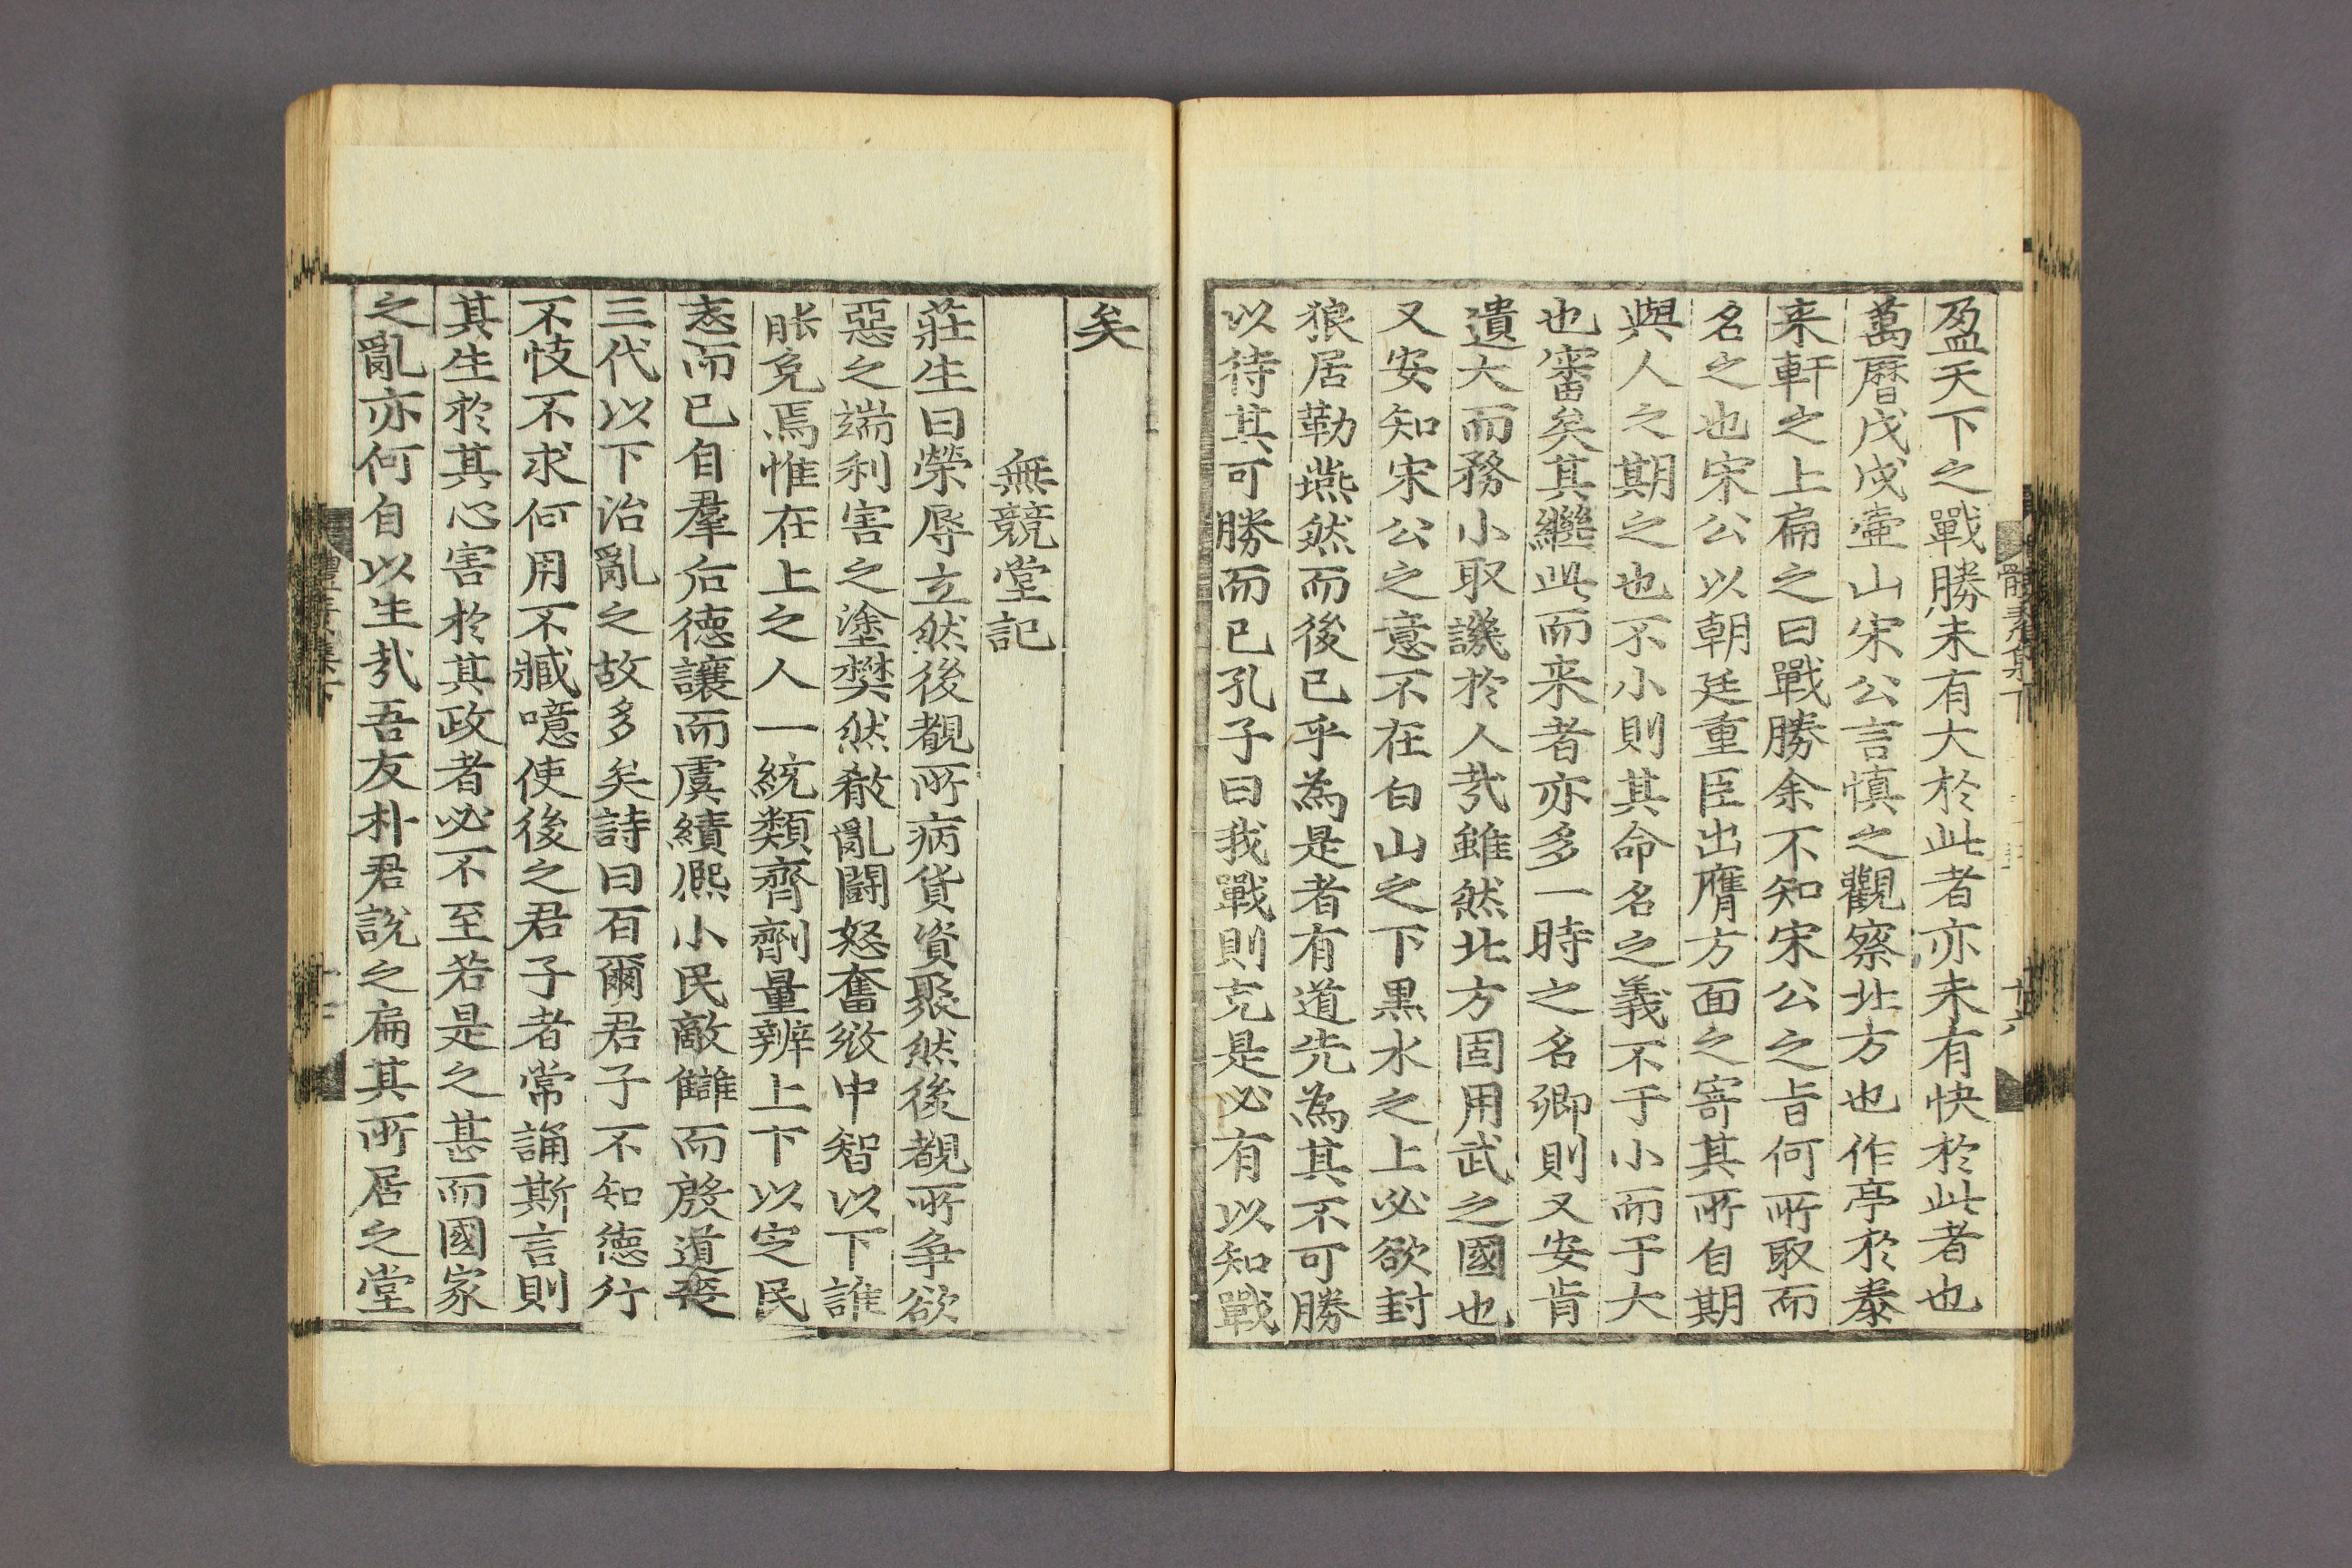 盈天下之戰勝未有大於此者亦未有快於此者也
萬曆戊戌壺山宋公言愼之觀察北方也作亭於泰
来軒之上扁之曰戰勝余不知宋公之旨何所取而
名之也宋公以朝廷重臣出膺方面之寄其所自期
與人之期之也不小則其命名之義不于小而于大
也審矣其繼此而来者亦多一時之名卿則又安肯
遺大而務小取譏於人㢤雖然北方固用武之國也
又安知宋公之意不在白山之下黒水之上必欲封
狼居勒燕然而後已乎為是者有道先為其不可勝
以待其可勝而已孔子曰我戰則克是必有以知戰
矣
無競堂記
莊生曰榮辱立然後覩所病貨資聚然後覩所争欲
惡之端利害之塗樊然殽亂鬪怒奮㳟中智以下誰
能免焉惟在上之人一統類齊劑量辨上下以定民
志而已自羣后德讓而虞績熈小民敵讎而殷道喪
三代以下治亂之故多矣詩曰百爾君子不知德行
不忮不求何用不臧噫使後之君子者常誦斯言則
其生於其心害於其政者必不至若是之甚而國家
之亂亦何自以生㢤吾友朴君說之扁其所居之堂